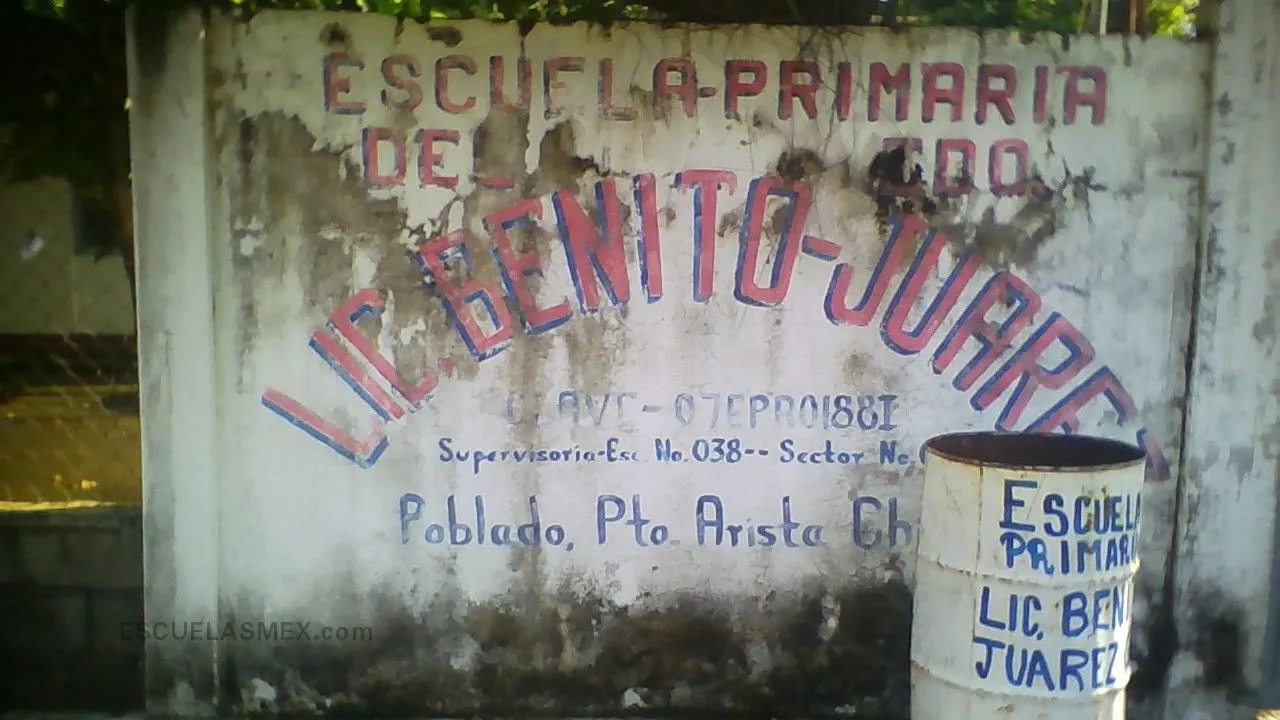 ESCUELA-PRIMARIA
DEL EDO.
LIC. BENITO-JUAREZ
CLAVE- 07EPR0188I
Supervisoria-Esc. No. 038-- Sector No.
Poblado, Pto. Arista Ch
ESCUELA
PRIMARI
LIC. BENI
JUAREZ
ESCUELASMEX.com